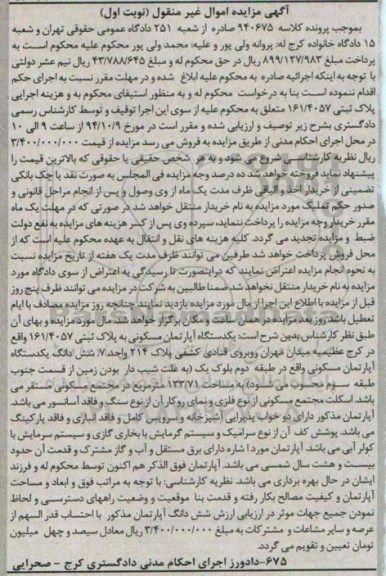 آگهی مزایده اموال غیر منقول (نوبت اول)
بموجب پرونده کلاسه ۹۴۰۶۷۵ صادره از شعبه ۲۵۱ دادگاه عمومی حقوقی تهران و شعبه
۱۵ دادگاه خانواده کرج له: پروانه ولی پور و علیه: محمد ولی پور محکوم علیه محکوم است به
پرداخت مبلغ ۸۹۹/۱۲۷/۹۸۳ ریال در حق محکوم له و مبلغ ۴۳/۷۸۸/۶۴۵ ریال نیم عشر دولتی
با توجه به اینکه اجرائیه صادره به محکوم علیه ابلاغ شده و در مهلت مقرر نسبت به اجرای حکم
اقدام ننموده است بنا به درخواست محکوم له و به منظور استیفای محکوم به و هزینه اجرایی
پلاک ثبتی ۱۶۱/۴۰۵۷ متعلق به محکوم علیه از سوی این اجرا توقیف و توسط کارشناس رسمی
دادگستری بشرح زیر توصیف و ارزیابی شده و مقرر است در مورخ ۹۴/۱۰/۹ از ساعت ۹ الی ۱۰
در محل اجرای احکام مدنی از طریق مزایده به فروش می رسد مزایده از قیمت ۳/۴۰۰/۰۰۰/۰۰۰
ریال نظریه کارشناسی شروع می شود و به هر شخص حقیقی یا حقوقی که بالاترین قیمت را
پیشنهاد نماید فروخته خواهد شد ده درصد وجه مزایده فی المجلس به صورت نقد یا چک بانکی
تضمینی از خریدار اخذ و الباقی ظرف مدت یک ماه از وی وصول و پس از انجام مراحل قانونی و
صدور حکم تملیک مورد مزایده به نام خریدار منتقل خواهد شد در صورتی که در مهلت یک ماه
مقرر خریدار وجه مزایده را پرداخت ننماید، سپرده وی پس از کسر هزینه های مزایده به نفع دولت
ضبط و مزایده تجدید می گردد. کلیه هزینه های نقل و انتقال به عهده محکوم علیه است که از
محل فروش پرداخت خواهد شد طرفین می توانند ظرف مدت یک هفته از تاریخ مزایده نسبت
به نحوه انجام مزایده اعتراض نمایند که دراینصورت تا رسیدگی به اعتراض از سوی دادگاه مورد
مزایده به نام خریدار منتقل نخواهد شد ضمنا طالبین به شرکت در مزایده می توانند ظرف پنج روز
قبل از مزایده با اطلاع این اجرا از مال مورد مزایده بازدید نمایند چنانچه روز مزایده مصادف با ایام
تعطیل باشد روز بعد مزایده در همان ساعت و مکان برگزار خواهد شد. مال مورد مزایده و بهای آن
طبق نظر کارشناس بدین شرح است: یکدستگاه آپارتمان مسکونی به پلاک ثبتی ۱۶۱/۴۰۵۷ واقع
در کرج عظیمیه میدان مهران روبروی قنادی کشفی پلاک ۲۱۴ واحد ۷، شش دانگ یکدستگاه
آپارتمان مسکونی واقع در طبقه دوم بلوک یک (به علت شیب دار بودن زمین از قسمت جنوب
طبقه سوم محسوب می شود) به مساحت ۱۳۳/۷۱ مترمربع در مجتمع مسکونی مستقر می
باشد. اسکلت مجتمع مسکونی از نوع فلزی و نمای روکار آن از نوع سنگ و فاقد آسانسور می باشد.
آپارتمان مذکور دارای دو خواب پذیرایی آشپزخانه و سرویس کامل و فاقد انباری و فاقد پارکینگ
می باشد. پوشش کف آن از نوع سرامیک و سیستم گرمایش با بخاری گازی و سیستم سرمایش با
کولر آبی می باشد. آپارتمان مورد اشاره دارای برق مستقل و آب و گاز مشترک و قدمت آن حدود
بیست و هشت سال شمسی می باشد. آپارتمان فوق الذکر هم اکنون توسط محکوم له و فرزند
ایشان در حال بهره برداری می باشد. نظریه کارشناسی: با توجه به مراتب فوق و ابعاد و مساحت
آپارتمان و کیفیت مصالح بکار رفته و قدمت بنا موقعیت و وضعیت راههای دسترسی و لحاظ
نمودن جمیع جهات موثر در ارزیابی ارزش شش دانگ آپارتمان مذکور با احتساب قدر السهم از
عرصه و سایر مشاعات و مشترکات به مبلغ ۳/۴۰۰/۰۰۰/۰۰۰ ریال معادل سیصد و چهل میلیون
تومان تعیین و تقویم می گردد.
۶۷۵-دادورز اجرای احکام مدنی دادگستری کرج - صحرایی